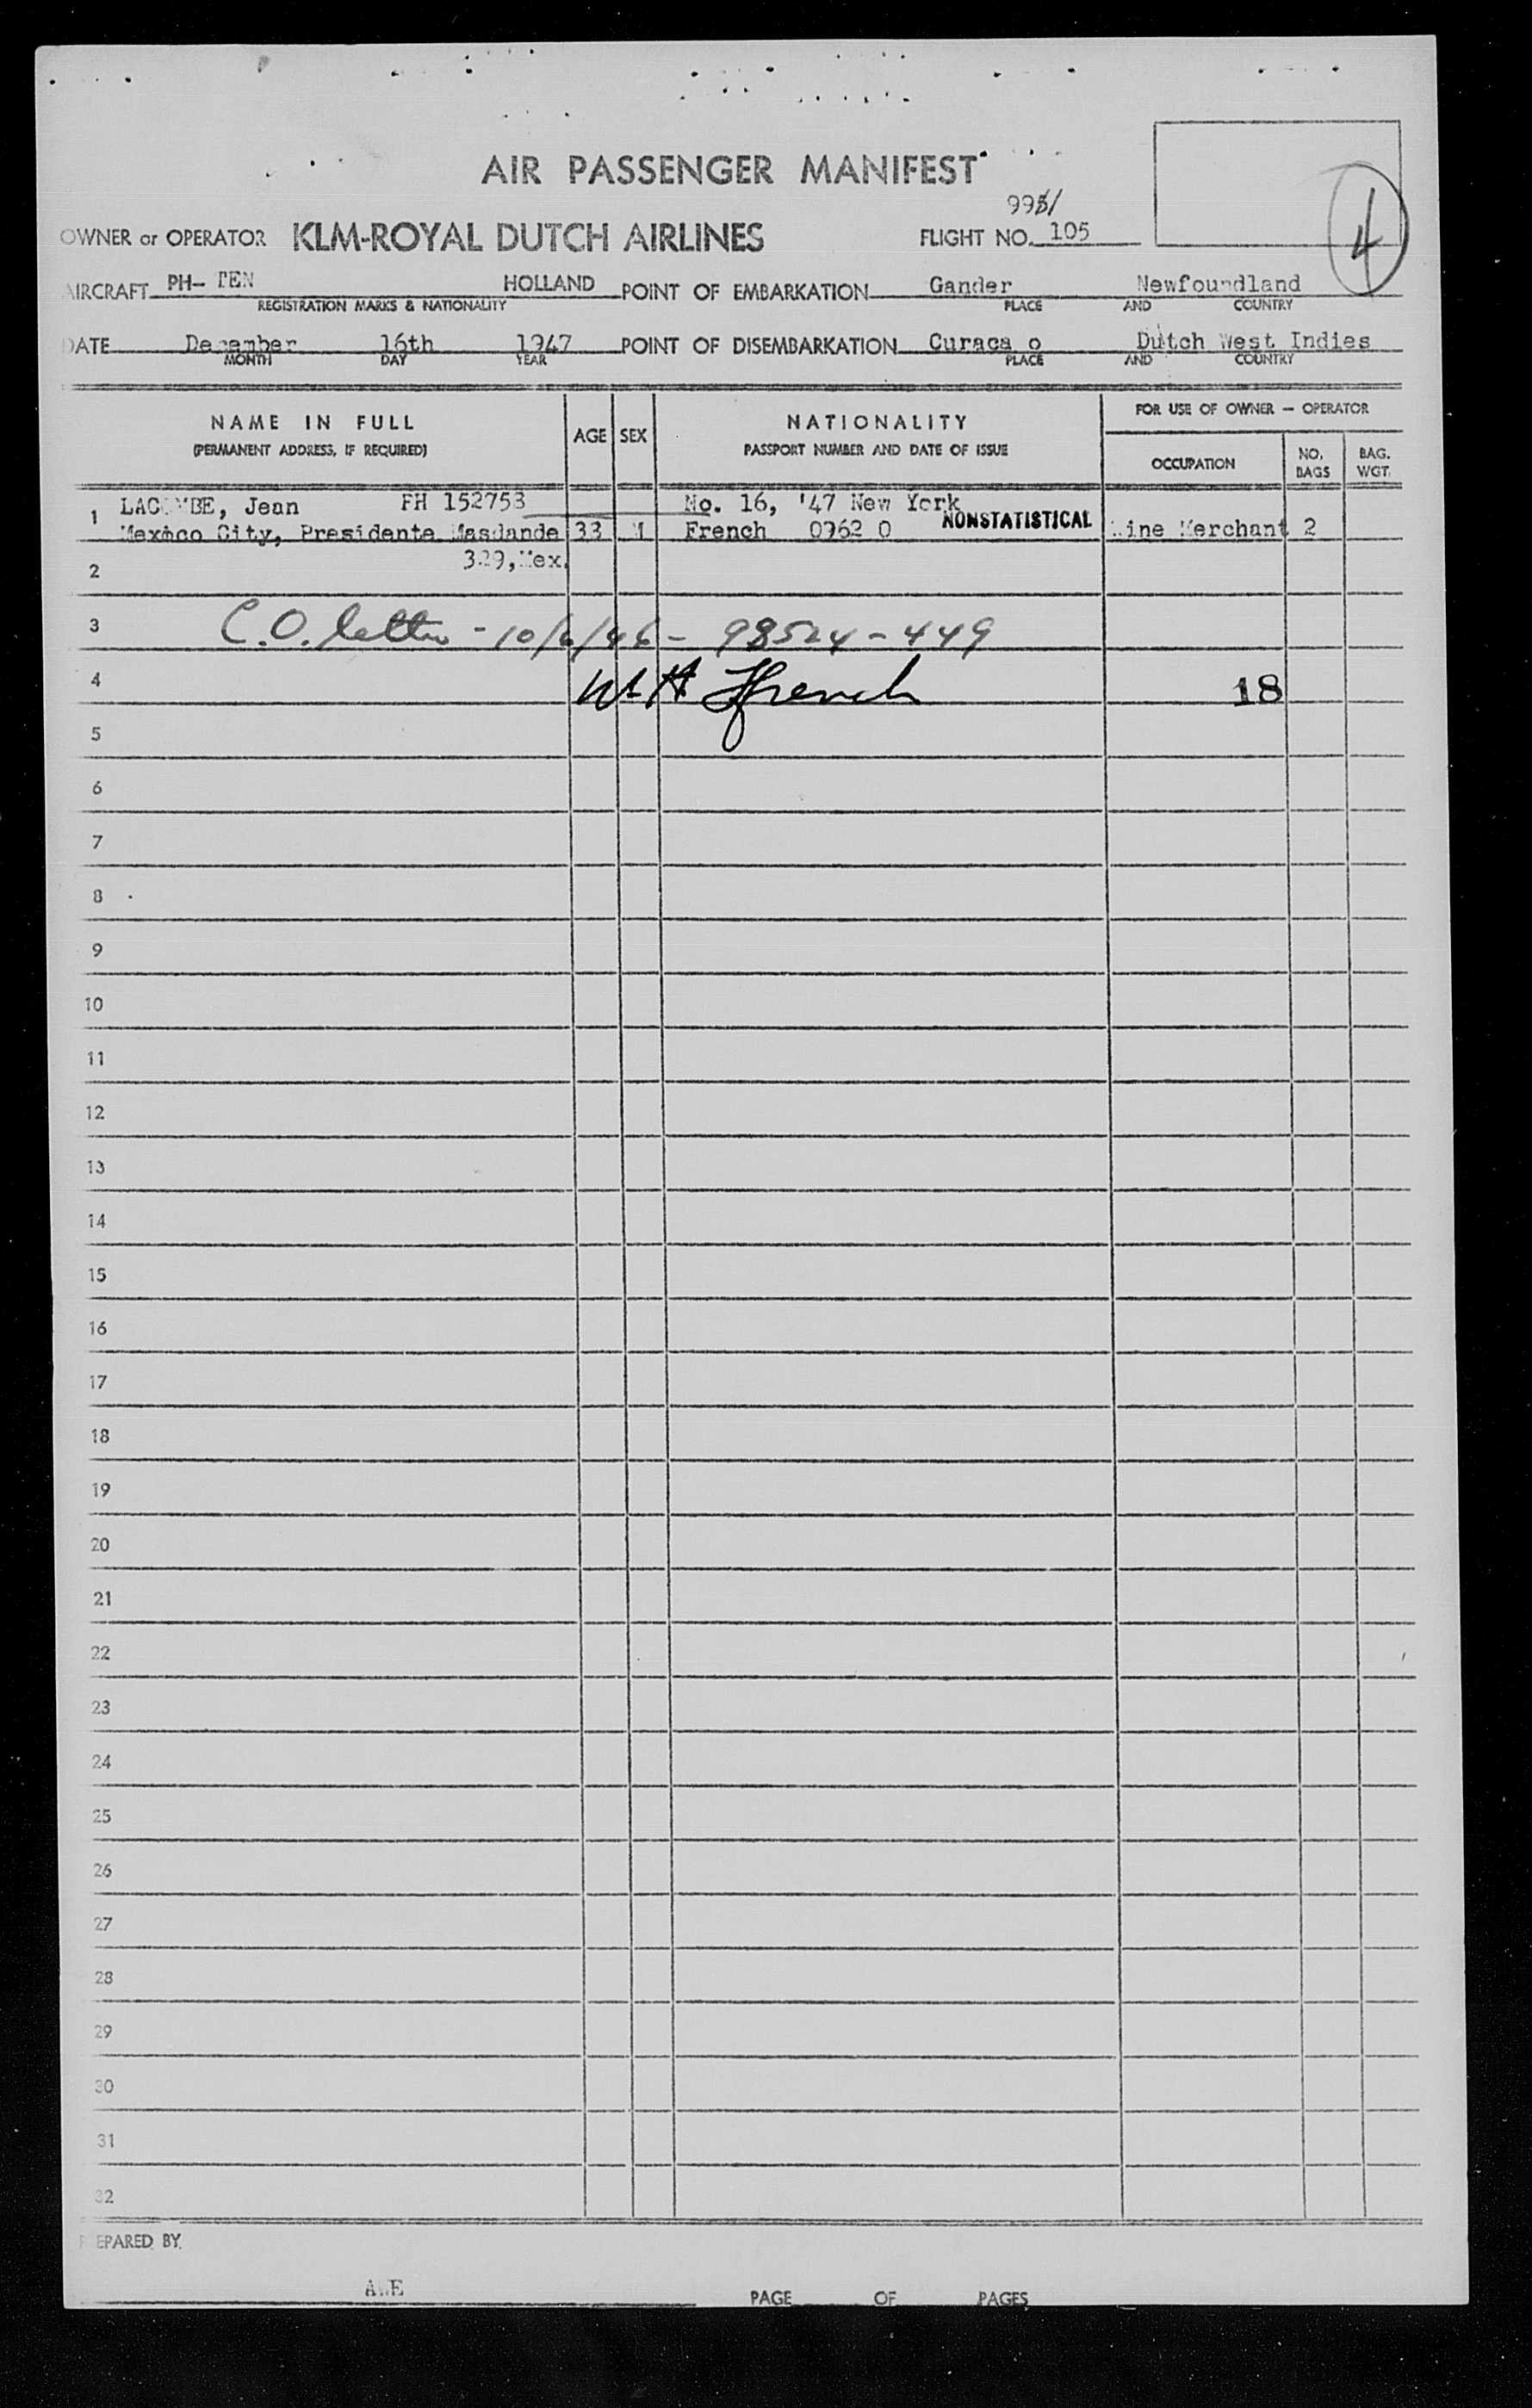 AIR PASSENGER MANIFEST
4
OWNER or OPERATOR KLM-ROYAL DUTCH AIRLINES FLIGHT NO. 105
AIRCRAFT PH- TEN HOLLAND POINT OF EMBARKATION Gander Newfoundland
REGISTRATION MARKS & NATIONALITY PLACE AND COUNTRY
DATE December 16th 1947 POINT OF DISEMBARKATION Curaca o Dutch West Indies
MONTH DAY YEAR PLACE AND COUNTRY
NAME IN FULL AGE SEX NATIONALITY FOR USE OF OWNER — OPERATOR
(PERMANENT ADDRESS, IF REQUIRED) PASSPORT NUMBER AND DATE OF ISSUE OCCUPATION NO. BAGS BAG. WGT.
1 LACOMBE, Jean FH 152753 No. 16, '47 New York
Mexico City, Presidente 33 M French 0962 0 NONSTATISTICAL Merchant 2
2 Mex.
3 C.O. letter - 10/6/46 - 98524-449
4 W H French 18
5
6
7
8
9
10
11
12
13
14
15
16
17
18
19
20
21
22
23
24
25
26
27
28
29
30
31
32
PREPARED BY
PAGE OF PAGES